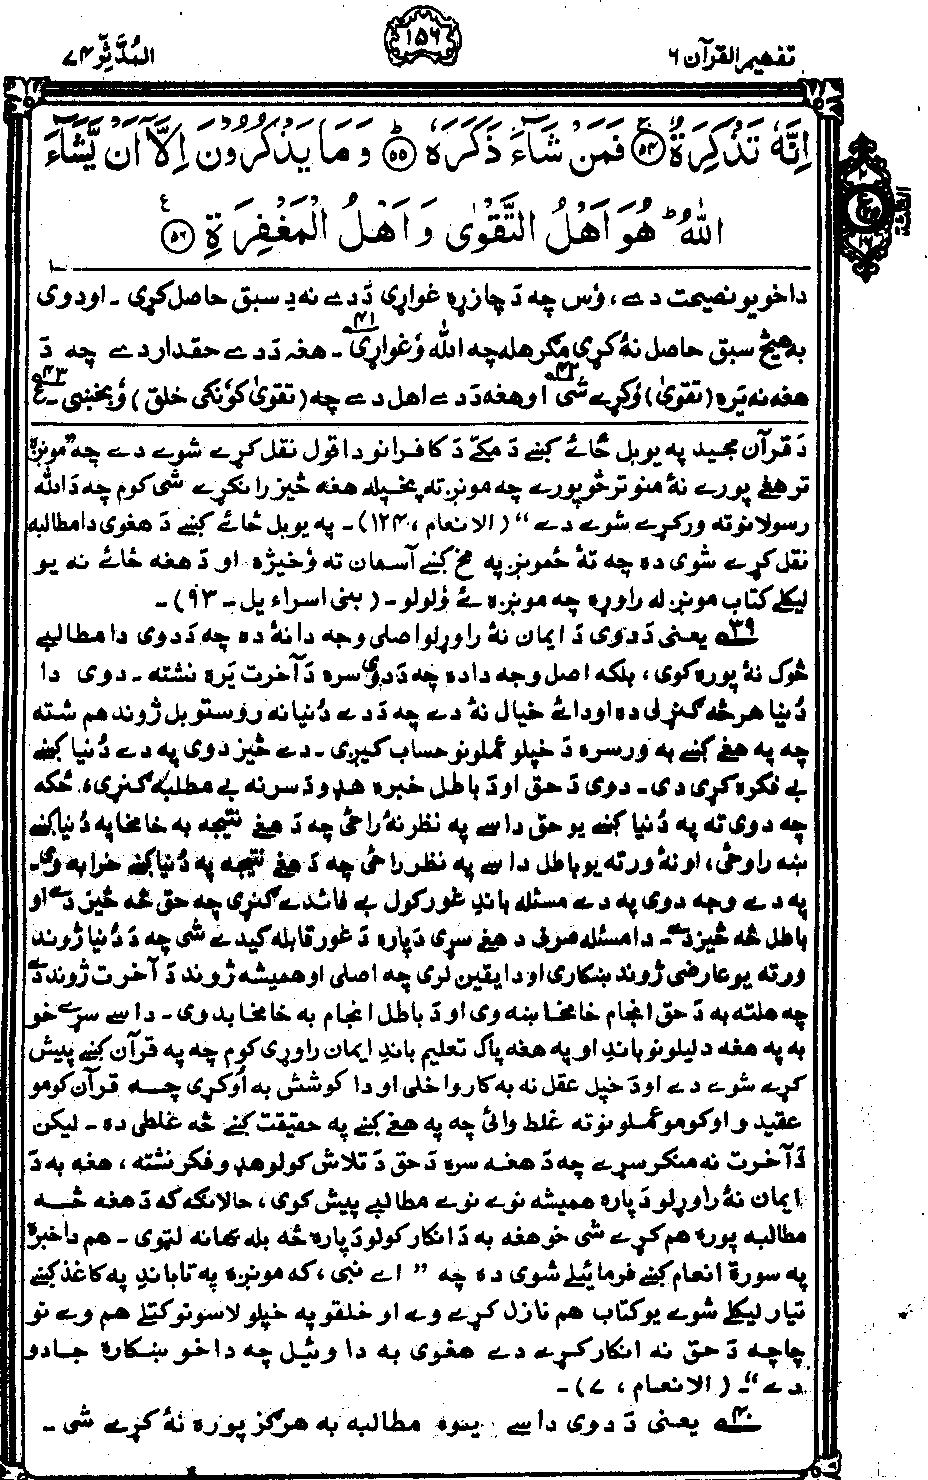 تفهيم القرآن ٦
١٥٦
المُدَّثِّر ٧٤
اِنَّهٗ تَذْكِرَةٌ ﴿٥٤﴾ فَمَنْ شَآءَ ذَكَرَهٗ ﴿٥٥﴾ وَمَا يَذْكُرُوْنَ اِلَّآ اَنْ يَّشَآءَ
اللّٰهُ ؕ هُوَ اَهْلُ التَّقْوٰى وَاَهْلُ الْمَغْفِرَةِ ﴿٥٦﴾
دا خو يو نصيحت دے، وُس چه دَ چا زړه غواړى دَ دے نه دِ سبق حاصل كړى ـ او دوى
به هيڅ سبق حاصل نهٔ كړى مګر هله چه الله وُغواړى ٤١ ـ هغه دَ دے حقدار دے چه دَ
هغه نه يَره (تقوىٰ) وُكړے شى ٤٢ او هغه دَ دے اهل دے چه (تقوىٰ كوُنكى خلق) وُبخښى ـ ٤٣
دَ قرآن مجيد په يو بل ځائے كښے دَ مكّے دَ كافرانو دا قول نقل كړے شوے دے چه "مونږه
تر هغے پورے نهٔ منو تر څو پورے چه مونږ ته پخپله هغه څيز رانكړے شى كوم چه دَ الله
رسولانو ته وركړے شوے دے" (الانعام، ١٢٤) ـ په يو بل ځائے كښے دَ هغوى دا مطالبه
نقل كړے شوى ده چه تهٔ ځمونږ په مخ كښے آسمان ته وُخيژه او دَ هغه ځائے نه يو
ليكلے كتاب مونږ له راوړه چه مونږه ئے وُلولو ـ (بنى اسراءيل ـ ٩٣) ـ
٣٩ يعنى دَ دوى دَ ايمان نهٔ راوړلو اصلى وجه دا نهٔ ده چه دَ دوى دا مطالبے
څوك نهٔ پوره كوى، بلكه اصل وجه دا ده چه دَ دوى سره دَ آخرت يَره نشته ـ دوى دا
دُنيا هر څه ګنړلى ده او دائے خيال نهٔ دے چه دَ دے دُنيا نه روستو بل ژوند هم شته
چه په هغے كښے به ورسره دَ خپلو عملونو حساب كيږى ـ دے څيز دوى په دے دُنيا كښے
بے فكره كړى دى ـ دوى دَ حق او دَ باطل خبره هډو دَ سر نه بے مطلبه ګنړى، ځكه
چه دوى ته په دُنيا كښے يو حق داسے په نظر نهٔ راځى چه دَ هغے نتيجه به خامخا په دُنيا كښے
ښه راوځى، او نهٔ ورته يو باطل داسے په نظر راځى چه دَ هغے نتيجه په دُنيا كښے خرابه وى ـ
په دے وجه دوى په دے مسئله باندِ غور كول بے فائدے ګنړى چه حق څه څيز دَے او
باطل څه څيز دَے ـ دا مسئله صرف دَ هغے سړى دَپاره دَ غور قابله كيدے شى چه دَ دُنيا ژوند
ورته يو عارضى ژوند ښكارى او دا يقين لرى چه اصلى او هميشه ژوند دَ آخرت ژوند دَے
چه هلته به دَ حق انجام خامخا ښه وى او دَ باطل انجام به خامخا بد وى ـ داسے سړے خو
به په هغه دليلونو باندِ او په هغه پاك تعليم باندِ ايمان راوړى كوم چه په قرآن كښے پيش
كړے شوے دے او دَ خپل عقل نه به كار واخلى او دا كوشش به اُوكړى چه قرآن كومو
عقيدو او كومو عملونو ته غلط وائى چه په هغے كښے په حقيقت كښے څه غلطى ده ـ ليكن
دَ آخرت نه منكر سړے چه دَ هغه سره دَ حق دَ تلاش كولو هډو فكر نشته، هغه به دَ
ايمان نهٔ راوړلو دَپاره هميشه نوے نوے مطالبے پيش كوى، حالانكه كه دَ هغه څه
مطالبه پوره هم كړے شى خو هغه به دَ انكار كولو دَپاره څه بله بهانه لټوى ـ هم دا خبره
په سورة انعام كښے فرمائيلے شوى ده چه "اے نبى، كه مونږه په تا باندِ په كاغذ كښے
تيار ليكلے شوے يو كتاب هم نازل كړے وے او خلقو په خپلو لاسونو كتلے هم وے نو
چا چه دَ حق نه انكار كړے دے هغوى به دا وئيل چه دا خو ښكاره جادو
دے" ـ (الانعام، ٧) ـ
٤٠ يعنى دَ دوى داسے يوه مطالبه به هرګز پوره نهٔ كړے شى ـ